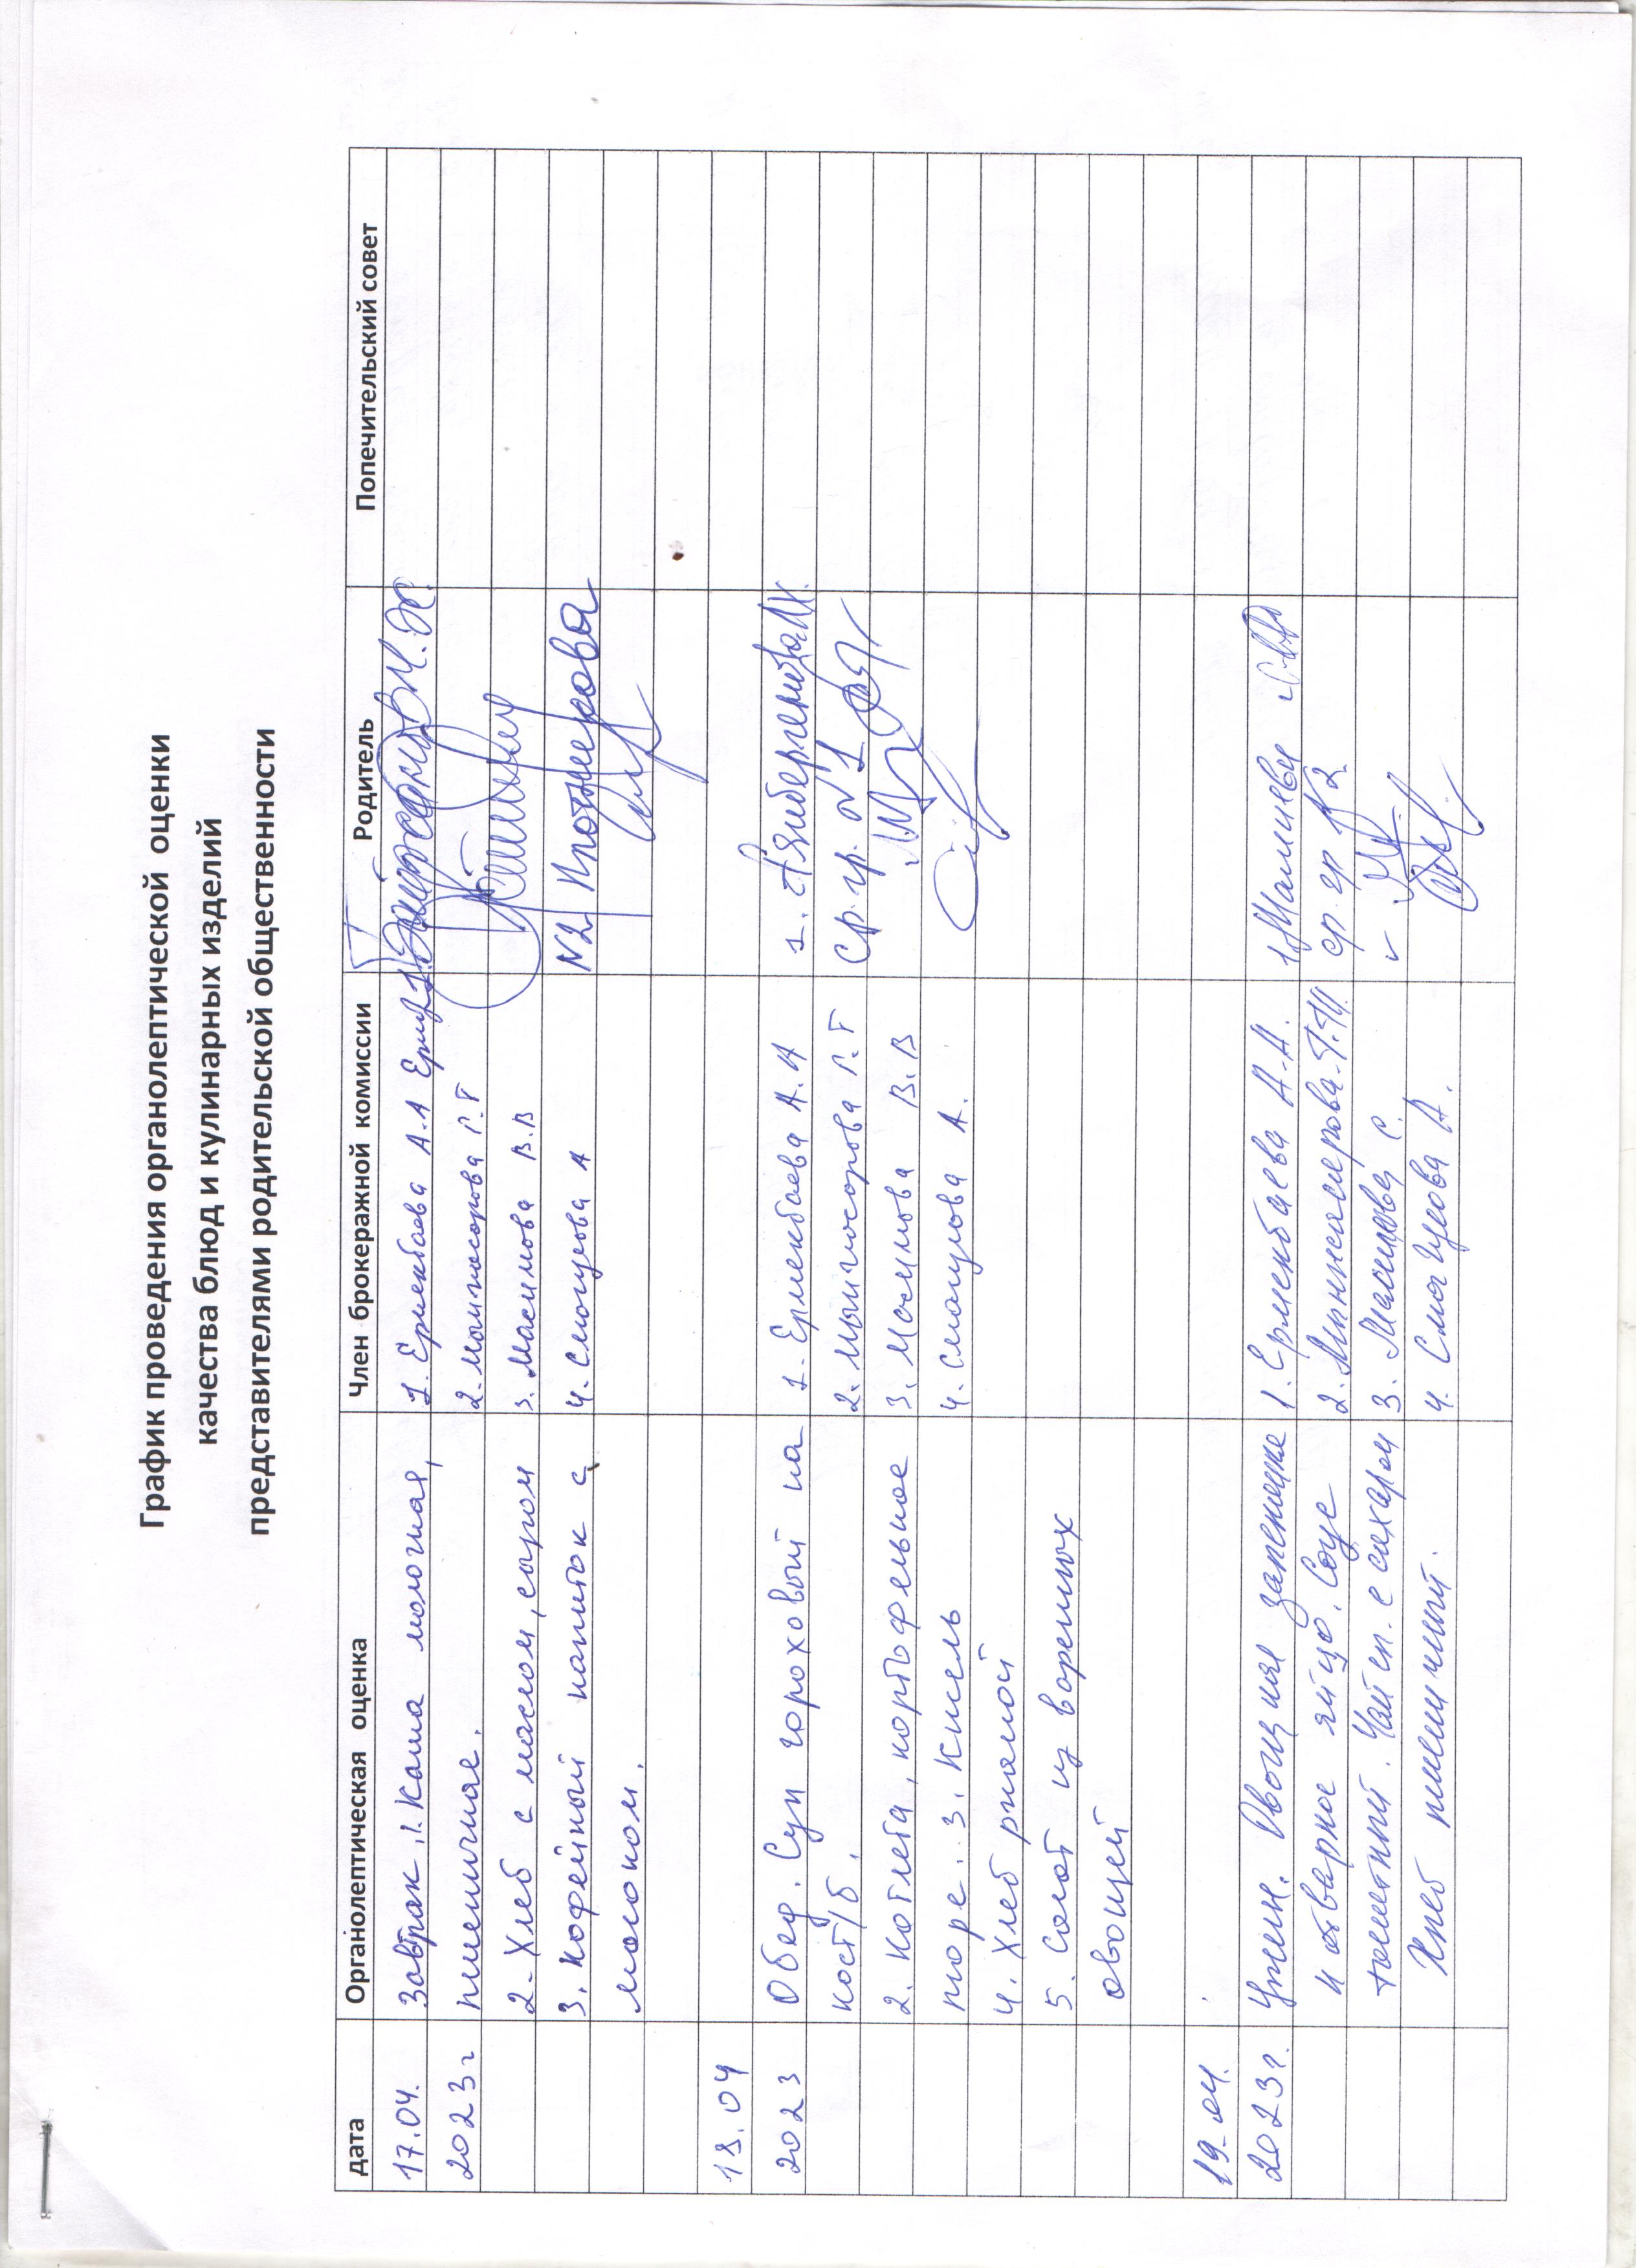 График проведения органолептической оценки
качества блюд и кулинарных изделий
представителями родительской общественности
дата Органолептическая оценка Член брокеражной комиссии Родитель Попечительский совет
17.04. Завтрак. 1. Каша молочная, 1. Ермекбаева А.А
2023г пшеничная. 2. Мынжосорова Г.Т
2. Хлеб с маслом, сыром 3. Масимова В.В
3. Кофейный напиток с 4. Смагулова А N2
молоком.
18.04
2023 Обед. Суп гороховый на 1. Ермекбаева А.А 1.
кост/б. 2. Мынжосорова Г.Т Ср. гр. №1
2. Котлета, картофельное 3. Масимова В.В
пюре. 3. Кисель 4. Смагулова А.
4. Хлеб ржаной
5. Салат из вареных
овощей
19.04.
2023г. Ужин. Овощная запеканка 1. Ермекбаева А.А.
и отварное яйцо. Соус 2. ср. гр №2
томатный. Чай сл. с сахаром 3. Масимова С.
Хлеб пшеничный. 4. Смагулова А.